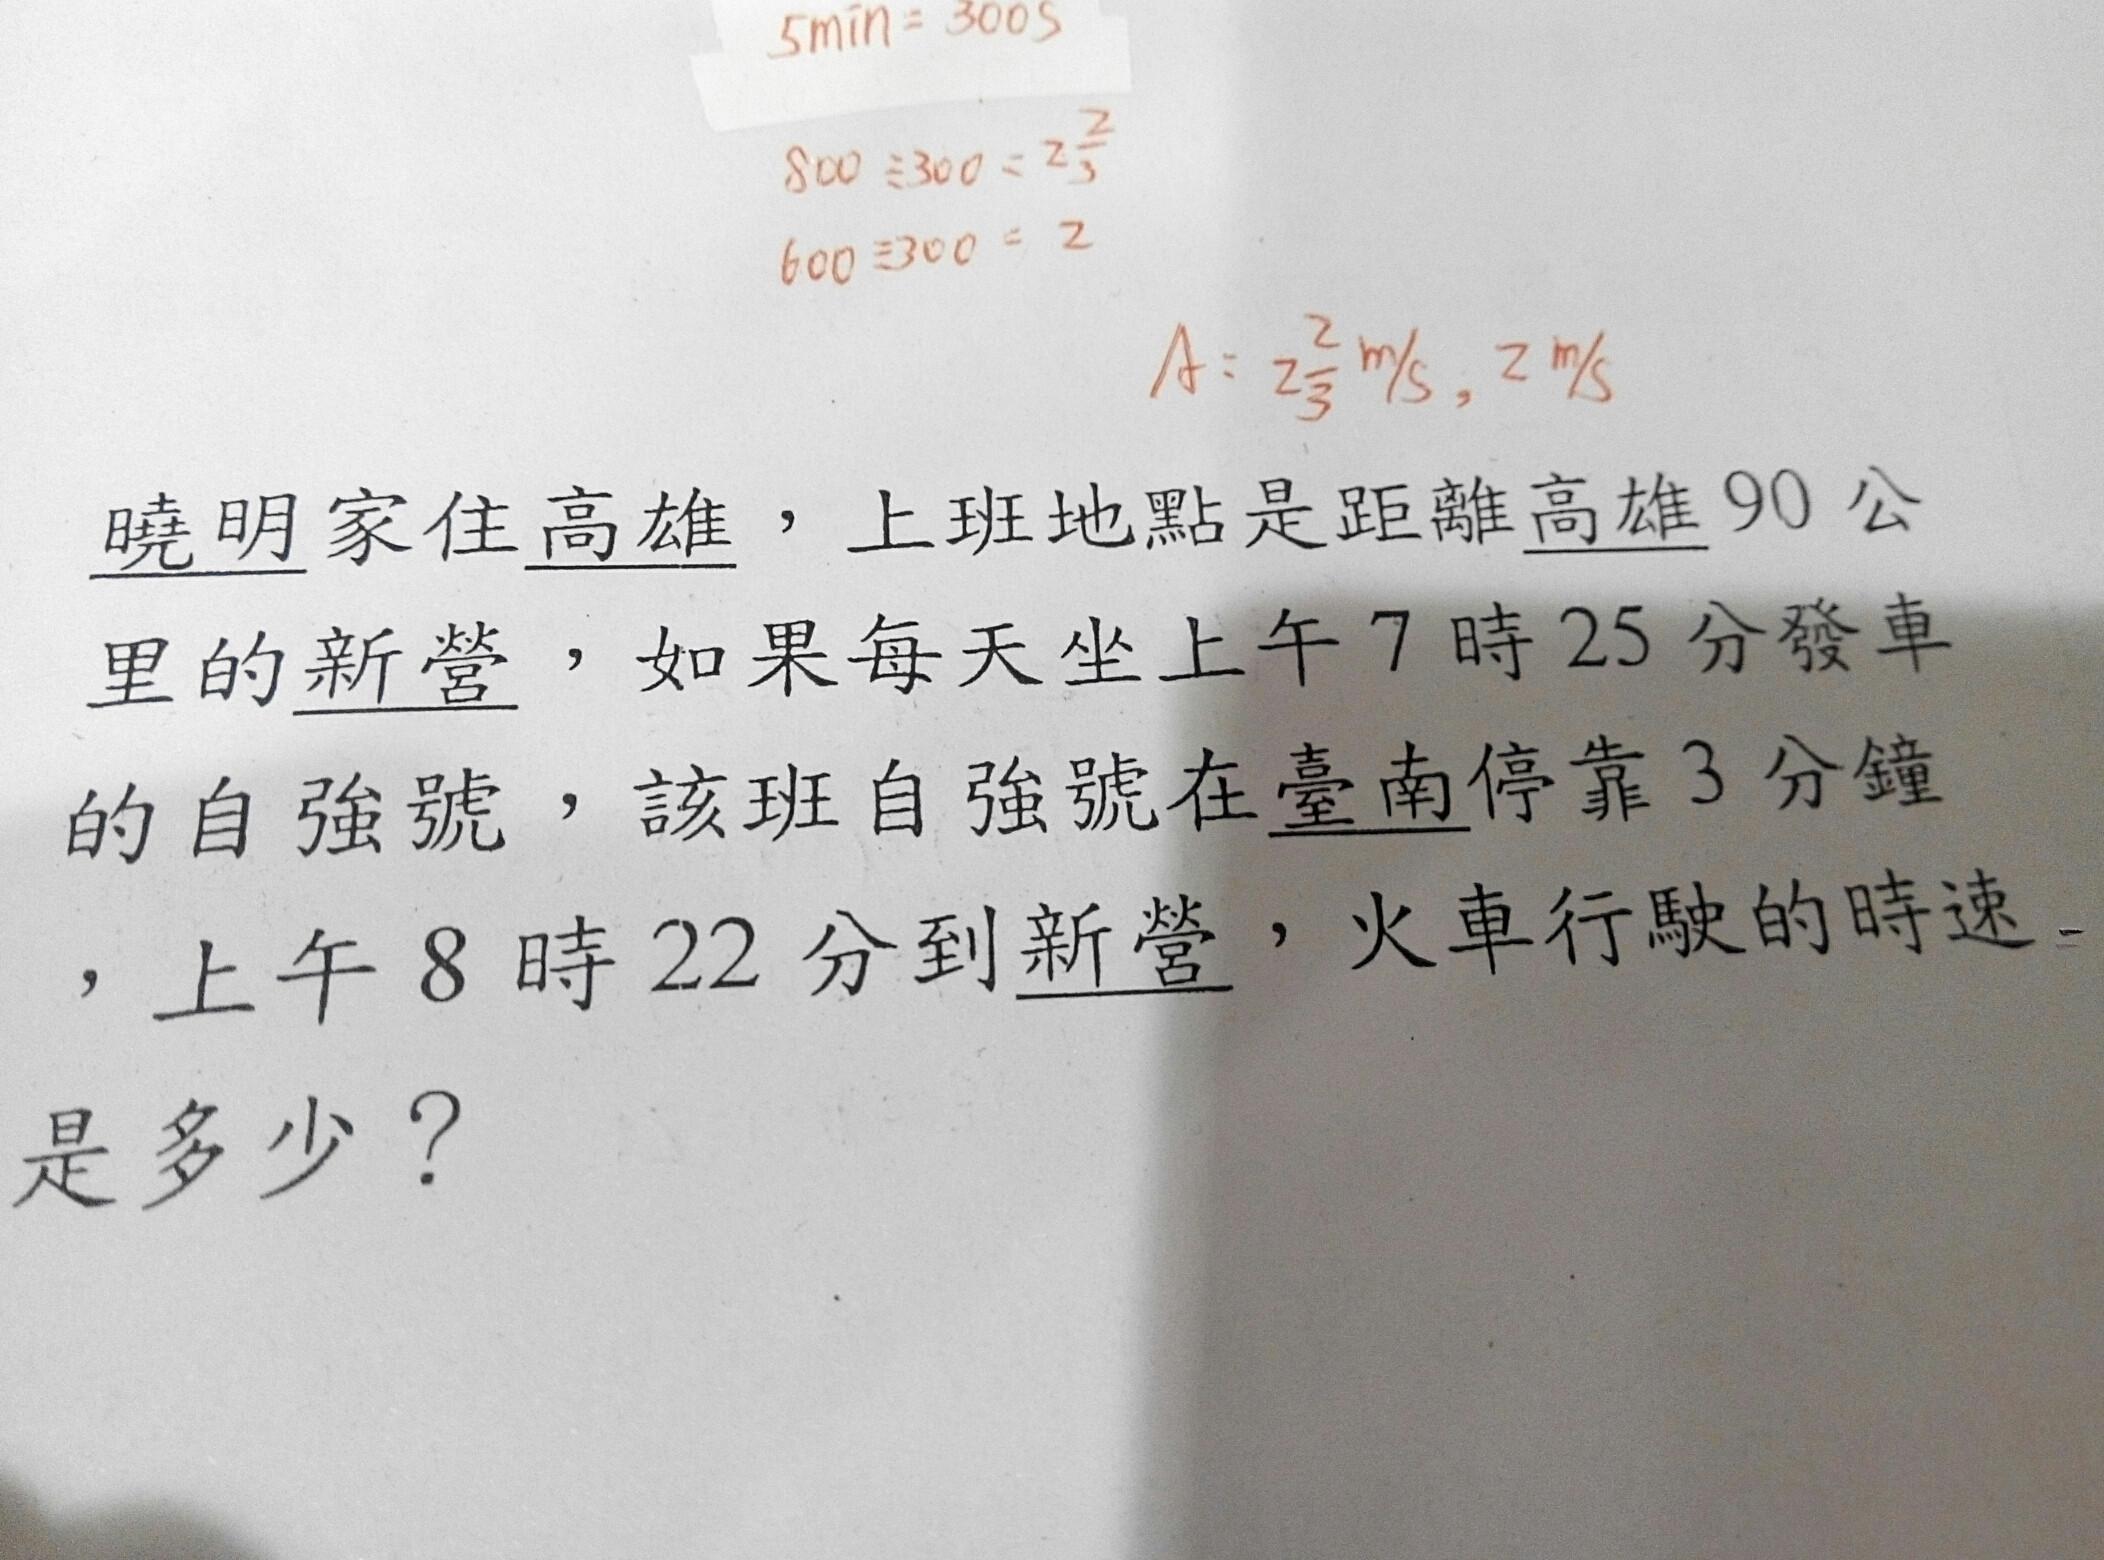 5min = 300s
800÷300 = 2 2/3
600÷300 = 2
A: 2 2/3 m/s, 2 m/s
曉明家住高雄，上班地點是距離高雄90公
里的新營，如果每天坐上午7時25分發車
的自強號，該班自強號在臺南停靠3分鐘
，上午8時22分到新營，火車行駛的時速
是多少？